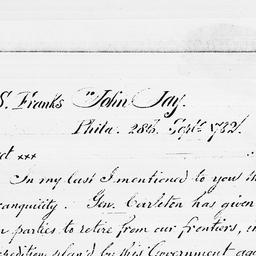 S. Franks to John Jay.
Phila. 28th. Septr. 1782.
ct xxx
In my last I mentioned to you th
ranquility. Gen. Carleton has given
n parties to retire from our frontiers, in
xpedition plan'd by this Government aga